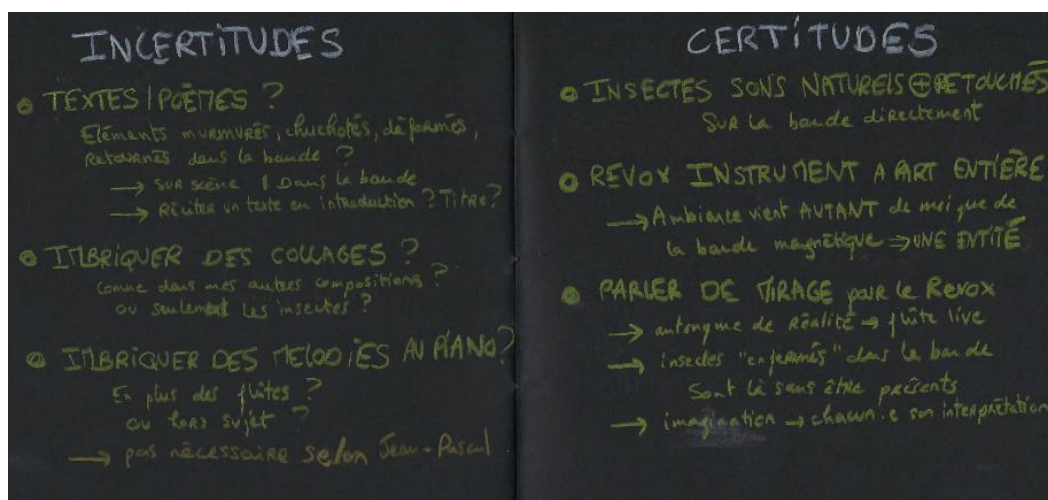 INCERTITUDES
TEXTES / POÈMES ?
Eléments murmurés, chuchotés, déformés,
Retournés dans la bande ?
→ SUR scène / Dans la bande
→ Réciter un texte en introduction ? Titre ?
IMBRIQUER DES COLLAGES ?
comme dans mes autres compositions ?
ou seulement les insectes ?
IMBRIQUER DES MELODIES AU PIANO ?
En plus des flûtes ?
ou hors sujet ?
→ pas nécessaire selon Jean-Pascal
CERTITUDES
INSECTES SONS NATURELS ⊕ RETOUCHÉS
SUR la bande directement
REVOX INSTRUMENT A PART ENTIÈRE
→ Ambiance vient AUTANT de moi que de
la bande magnétique ⇒ UNE ENTITÉ
PARLER DE MIRAGE pour le Revox
→ antonyme de Réalité → flûte live
→ insectes "enfermés" dans la bande
Sont là sans être présents
→ imagination → chacun·e son interprétation